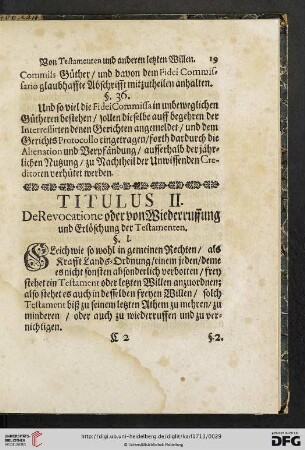 Von Testamenten und anderen letzten Willen. 19
Commiss Güther/ und davon dem Fidei Commis-
sario glaubhaffte Abschrifft mitzutheilen anhalten.
§. 36.
Und so viel die Fidei Commissa in unbeweglichen
Gütheren bestehen/ sollen dieselbe auff begehren der
Interressirten denen Gerichten angemeldet/ und dem
Gerichts Protocollo eingetragen/ forth dardurch die
Alienation und Verpfändung/ ausserhalb der jähr-
lichen Nutzung/ zu Nachtheil der Unwissenden Cre-
ditoren verhütet werden.
TITULUS II.
De Revocatione oder von Wiederruffung
und Erlöschung der Testamenten.
§. 1.
Gleich wie so wohl in gemeinen Rechten/ als
Krafft Lands-Ordnung/ einem jeden/ deme
es nicht sonsten absonderlich verbotten/ frey
stehet ein Testament oder letzten Willen anzuordnen;
also stehet es auch in desselben freyen Willen/ solch
Testament biß zu seinem letzten Athem zu mehren/ zu
minderen/ oder auch zu wiederruffen und zu ver-
nichtigen.
C 2 §. 2.
UNIVERSITÄTS-
BIBLIOTHEK
HEIDELBERG
http://digi.ub.uni-heidelberg.de/diglit/karl1711/0029
© Universitätsbibliothek Heidelberg
gefördert durch die
DFG